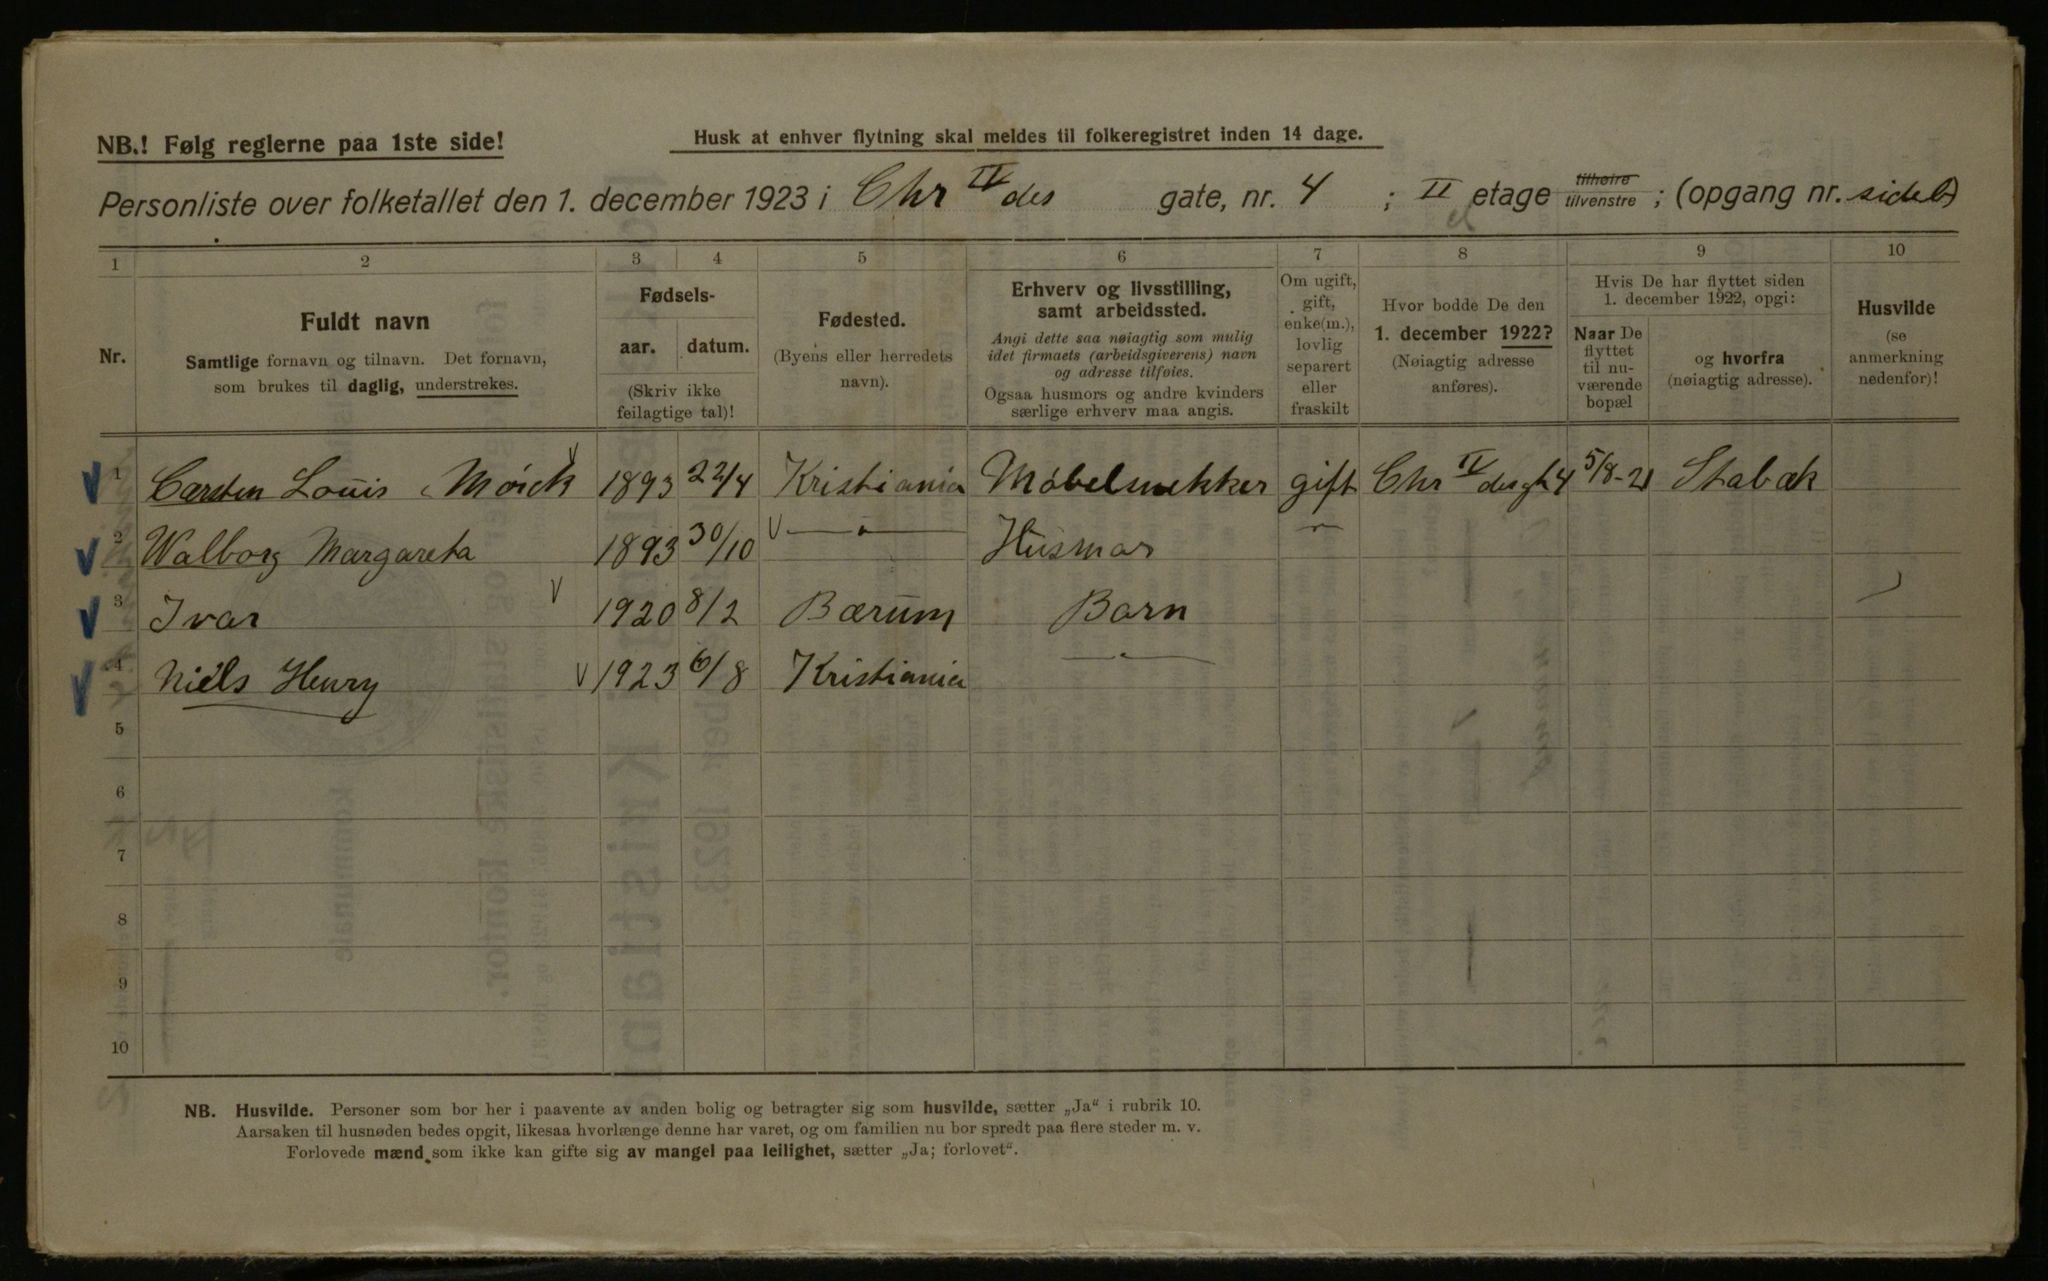 NB.! Følg reglerne paa 1ste side!
Husk at enhver flytning skal meldes til folkeregistret inden 14 dage.
Personliste over folketallet den 1. december 1923 i Chr IV des gate, nr. 4 ; II etage tilhøire tilvenstre ; (opgang nr. sideb)
1 2 3 4 5 6 7 8 9 10
Nr.
Fuldt navn
Samtlige fornavn og tilnavn. Det fornavn,
som brukes til daglig, understrekes.
Fødsels-
aar. datum.
(Skriv ikke
feilagtige tal)!
Fødested.
(Byens eller herredets
navn).
Erhverv og livsstilling,
samt arbeidssted.
Angi dette saa nøiagtig som mulig
idet firmaets (arbeidsgiverens) navn
og adresse tilføies.
Ogsaa husmors og andre kvinders
særlige erhverv maa angis.
Om ugift,
gift,
enke(m.),
lovlig
separert
eller
fraskilt
Hvor bodde De den
1. december 1922?
(Nøiagtig adresse
anføres).
Hvis De har flyttet siden
1. december 1922, opgi:
Naar De
flyttet
til nu-
værende
bopæl
og hvorfra
(nøiagtig adresse).
Husvilde
(se
anmerkning
nedenfor)!
1 Carsten Louis Mørck 1893 22/4 Kristiania Møbelsnekker gift Chr IV des gt 4 5/8-21 Stabæk
2 Walborg Margareta 1893 30/10 —"— Husmor —"—
3 Ivar 1920 8/2 Bærum Barn
4 Niels Henry 1923 6/8 Kristiania —"—
5
6
7
8
9
10
NB. Husvilde. Personer som bor her i paavente av anden bolig og betragter sig som husvilde, sætter „Ja“ i rubrik 10.
Aarsaken til husnøden bedes opgit, likesaa hvorlænge denne har varet, og om familien nu bor spredt paa flere steder m. v.
Forlovede mænd som ikke kan gifte sig av mangel paa leilighet, sætter „Ja; forlovet“.